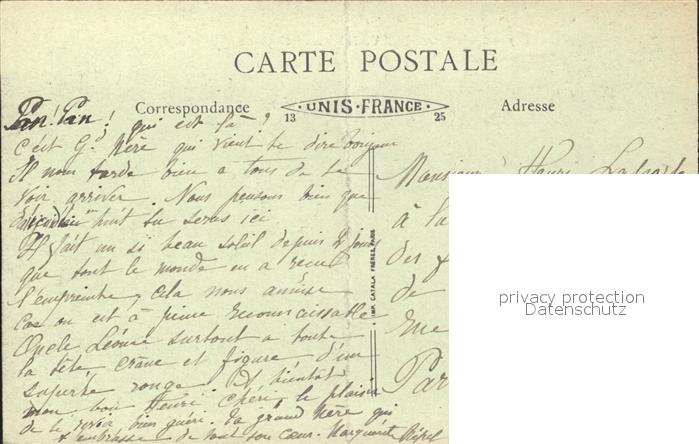 CARTE POSTALE
Correspondance UNIS-FRANCE Adresse
13 25
Pan! Pan! qui est là ?
c'est Gd Mère qui vient te dire bonjour
Il nous tarde bien à tous de te
voir arriver. Nous pensons bien que
huit tu seras ici
Il fait un si beau soleil depuis 2 jours
que tout le monde en a reçu
l'empreinte, cela nous amuse
car on est à peine reconnaissable
Oncle Léonce surtout a toute
la tête crâne et figure d'un
superbe rouge. A bientôt
mon bon Henri chéri, le plaisir
de te revoir bien guéri. Ta grand Mère qui
t'embrasse de tout son cœur. Marguerite
Monsieur Henri
à la
des
de
rue
Par
IMP. CATALA FRÈRES, PARIS
privacy protection
Datenschutz